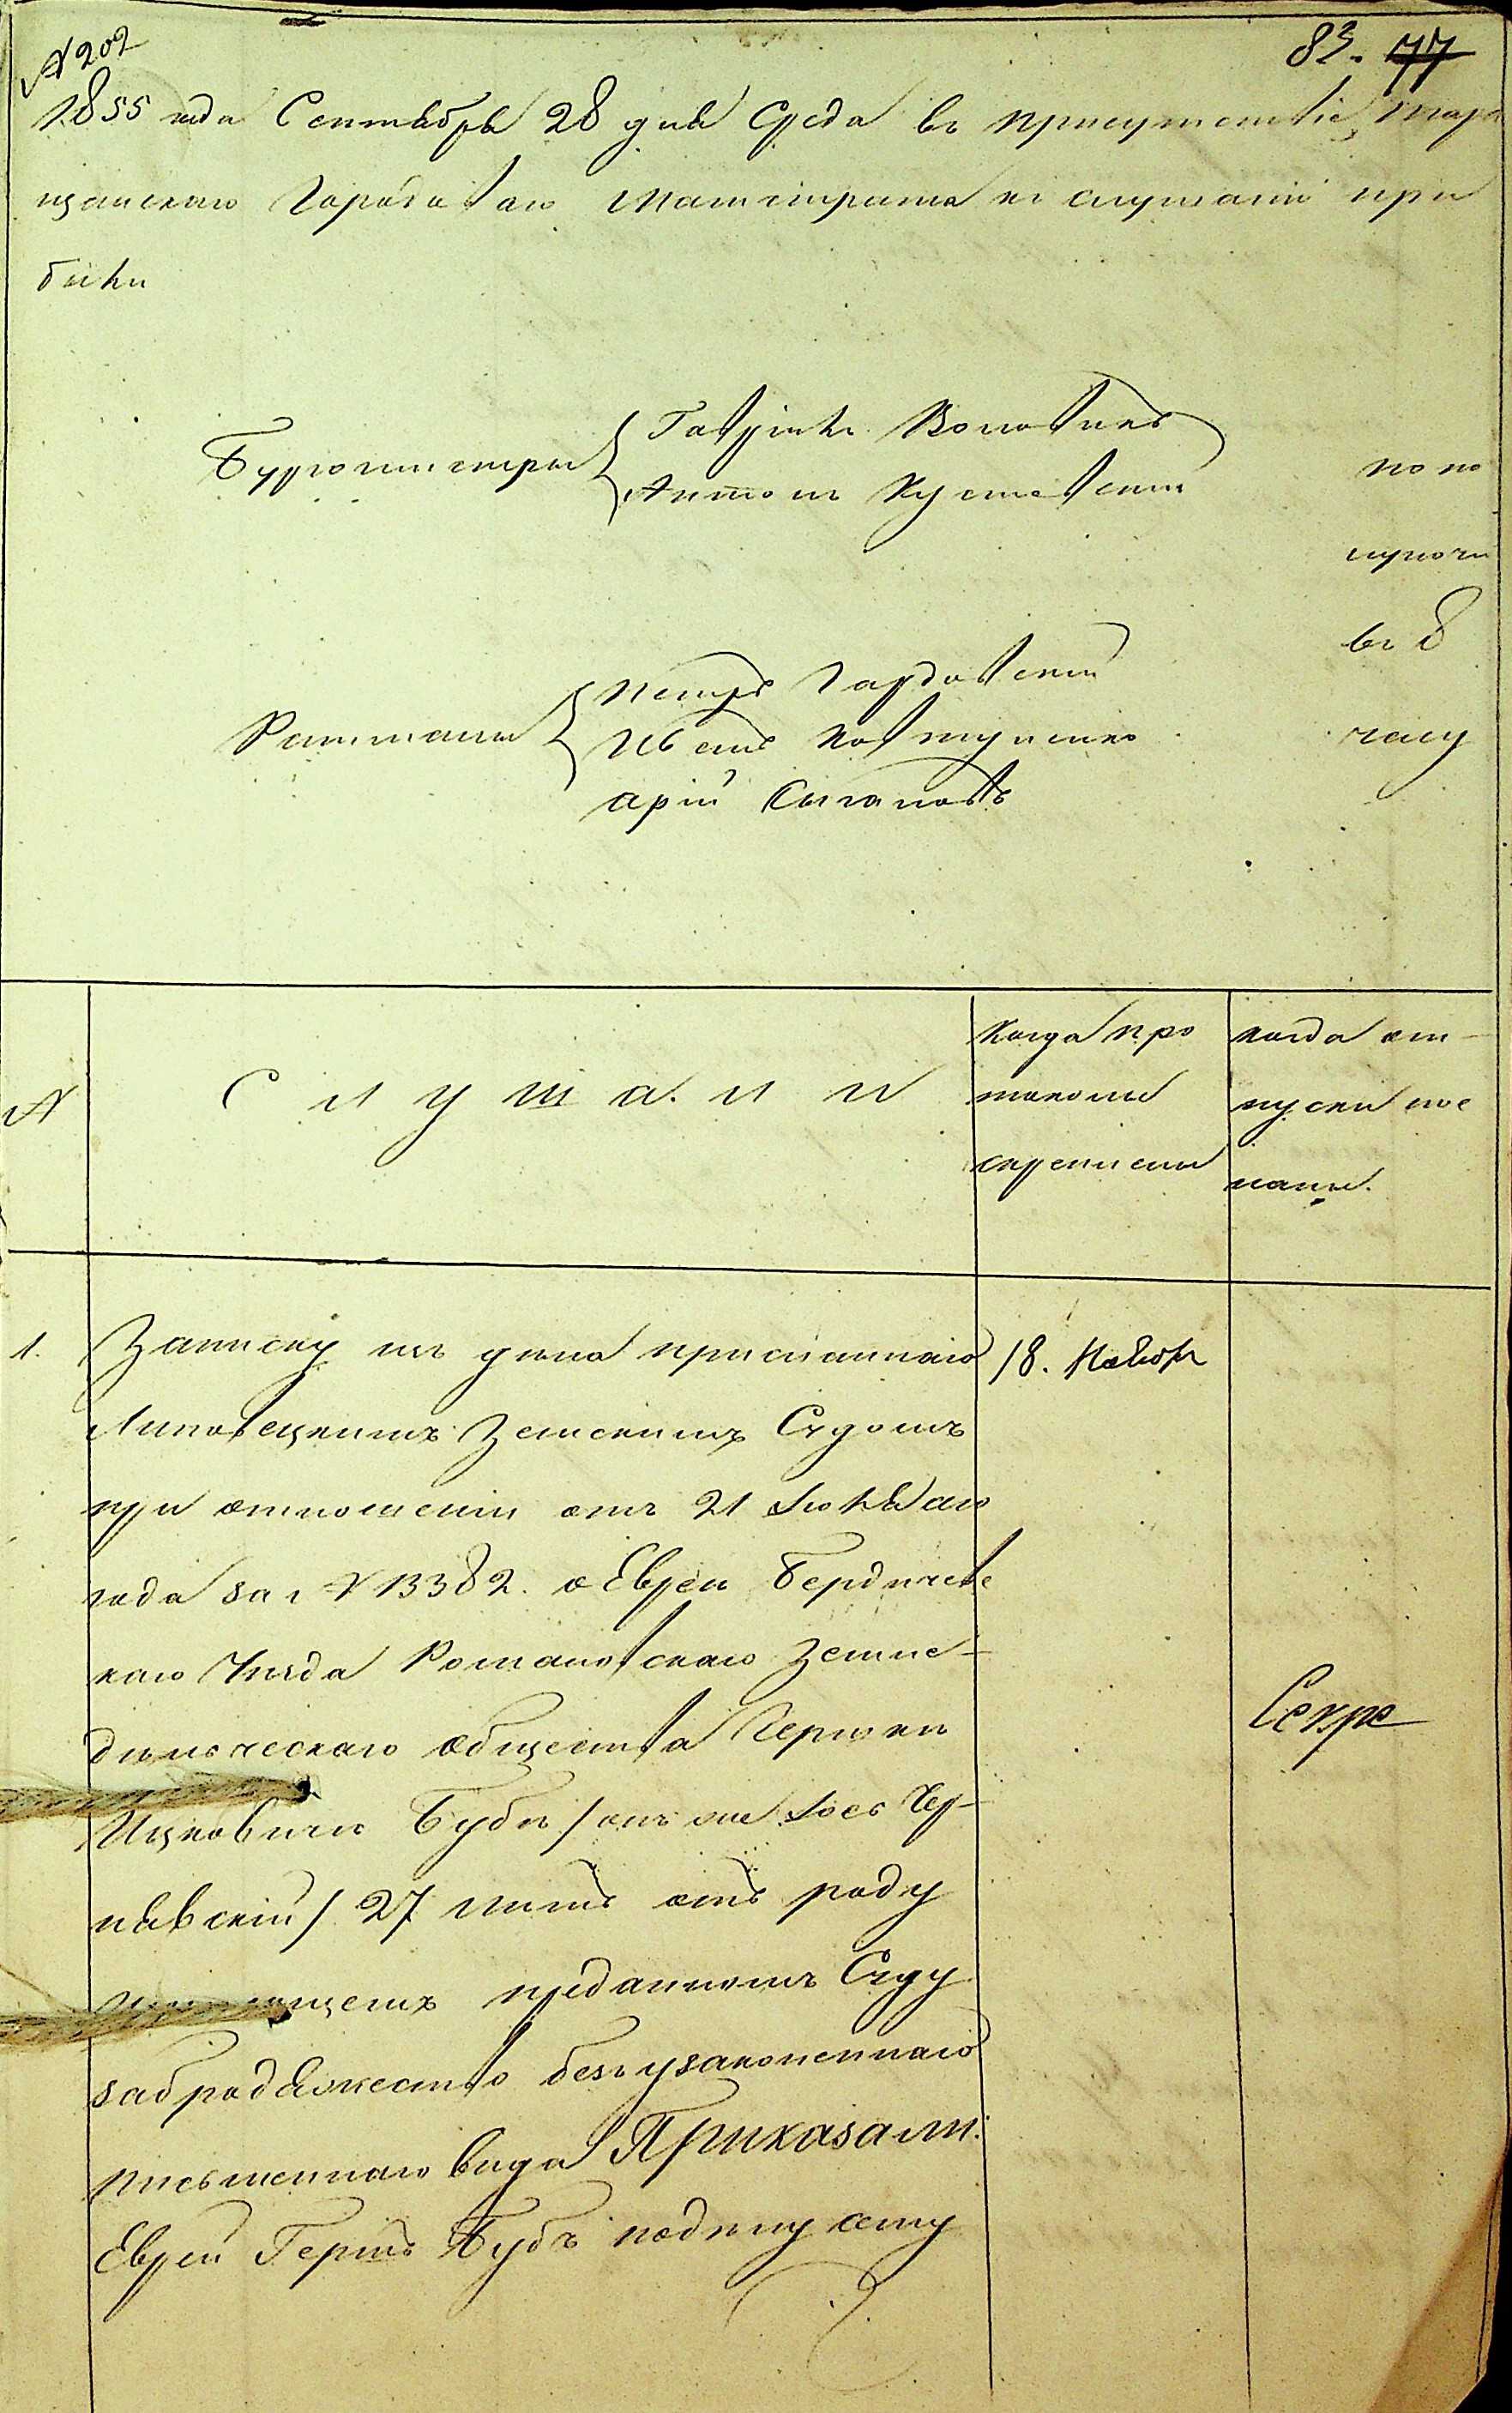 № 202
83. 77
1855 года Сентября 28 дня Среда въ присутствіе Тара
щанскаго Городоваго Магистрата къ слушанію при
были
Бургомистры
Гаврилъ Воловикъ
Антонъ
по по
луночи
въ 8
часу
Ратманы
Петръ Гардовскій
Иванъ Ковтуненко
Арій Сыгаловъ
№
Слушали
Когда про
токолы
скреплены
когда от-
пуски пос
ланы.
1. Записку изъ дела присланнаго
Липовецкимъ Земскимъ Судомъ
при отношеніи отъ 21 Іюля сего
года за № 13382. о Евреи Бердичевс
каго Уезда Романовскаго Земле-
дельческаго общества Гершки
Ицковича Бубы / онъ же Іось Чер-
нявскій / 27 летъ отъ роду
преданномъ Суду
за бродяжество безъ узаконеннаго
письменнаго вида Приказали:
Еврей Гершъ Бубъ подлну сему
18. Ноября
Секре